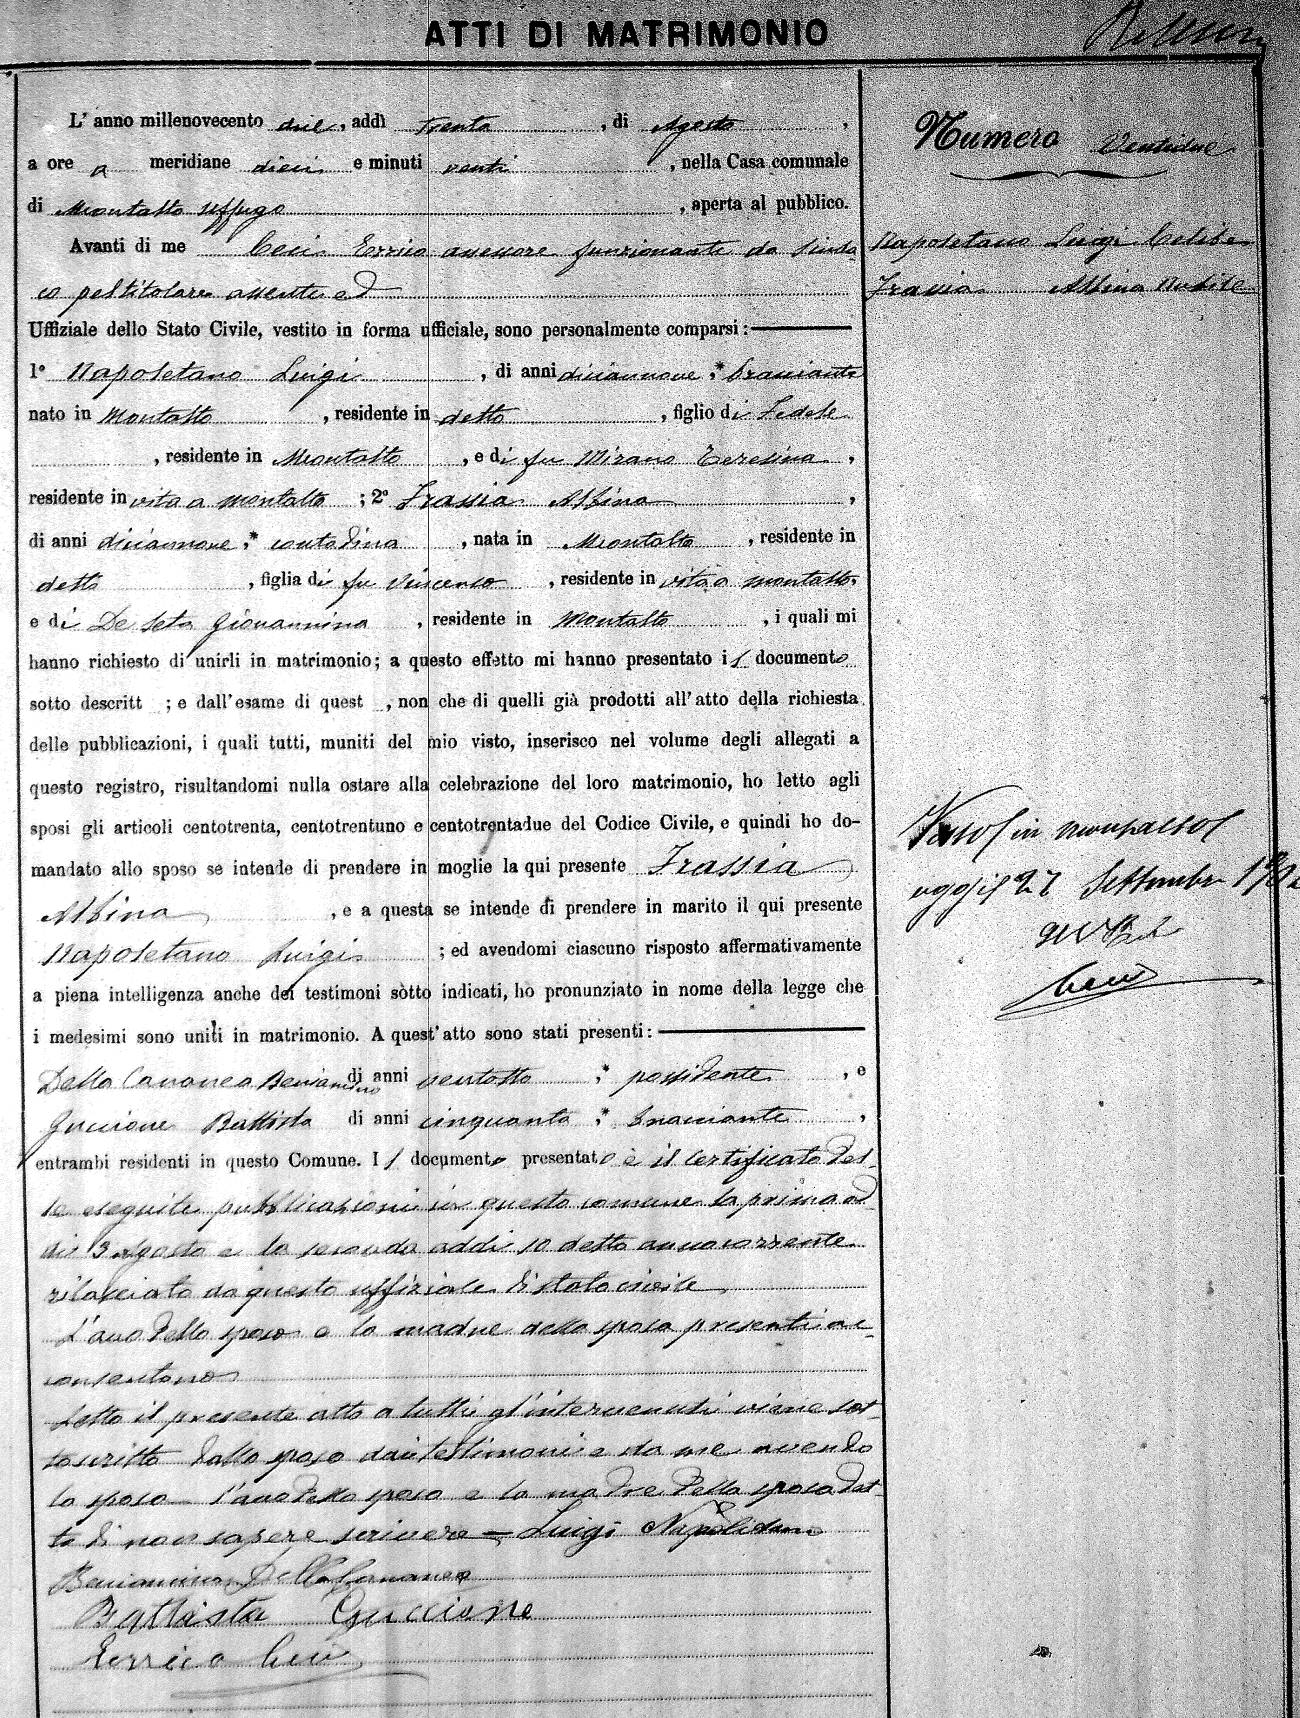 ATTI DI MATRIMONIO
L' anno millenovecento due, addì trenta, di Agosto,
a ore a meridiane dieci e minuti venti, nella Casa comunale
di Montalto Uffugo, aperta al pubblico.
Avanti di me Ceci Errico assessore funzionante da Sinda
co pel titolare assente ed
Uffiziale dello Stato Civile, vestito in forma ufficiale, sono personalmente comparsi:
1° Napoletano Luigi, di anni diciannove,* bracciante
nato in Montalto, residente in detto, figlio di Fedele
, residente in Montalto, e di fu Mirano Teresina,
residente in vita a Montalto; 2° Frassia Albina,
di anni diciannove,* contadina, nata in Montalto, residente in
detto, figlia di fu Vincenzo, residente in vita a Montalto,
e di De Seta Giovannina, residente in Montalto, i quali mi
hanno richiesto di unirli in matrimonio; a questo effetto mi hanno presentato il documento
sotto descritt ; e dall'esame di quest , non che di quelli già prodotti all'atto della richiesta
delle pubblicazioni, i quali tutti, muniti del mio visto, inserisco nel volume degli allegati a
questo registro, risultandomi nulla ostare alla celebrazione del loro matrimonio, ho letto agli
sposi gli articoli centotrenta, centotrentuno e centotrentadue del Codice Civile, e quindi ho do-
mandato allo sposo se intende di prendere in moglie la qui presente Frassia
Albina, e a questa se intende di prendere in marito il qui presente
Napoletano Luigi; ed avendomi ciascuno risposto affermativamente
a piena intelligenza anche dei testimoni sotto indicati, ho pronunziato in nome della legge che
i medesimi sono uniti in matrimonio. A quest'atto sono stati presenti:
Della Cananea Beniamino di anni ventotto,* possidente, e
Guccione Battista di anni cinquanta,* bracciante,
entrambi residenti in questo Comune. Il documento presentato è il certificato del-
le eseguite pubblicazioni in questo comune la prima ad
dì 3 Agosto e la seconda addì 10 detto anno corrente
rilasciato da questo uffiziale di stato civile
L'avo dello sposo e la madre della sposa presenti ac-
consentono
Letto il presente atto a tutti gl'intervenuti viene sot-
toscritto dallo sposo dai testimoni e da me avendo
la sposa l'avo dello sposo e la madre della sposa det-
to di non sapere scrivere = Luigi Napolidano
Beniamino Della Cananea
Battista Guccione
Errico Ceci
Numero Ventidue
Napoletano Luigi Celibe
Frassia Albina Nubile
oggi 27 Settembre
Ceci